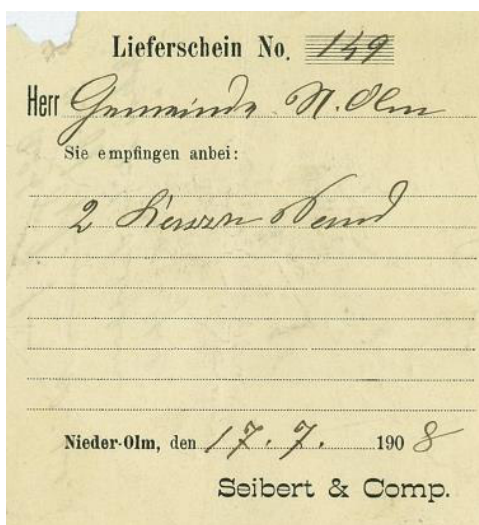 Lieferschein No. 149
Herr Gemeinde N. Olm
Sie empfingen anbei:
2 Karrn Sand
Nieder-Olm, den 17. 7. 1908
Seibert & Comp.